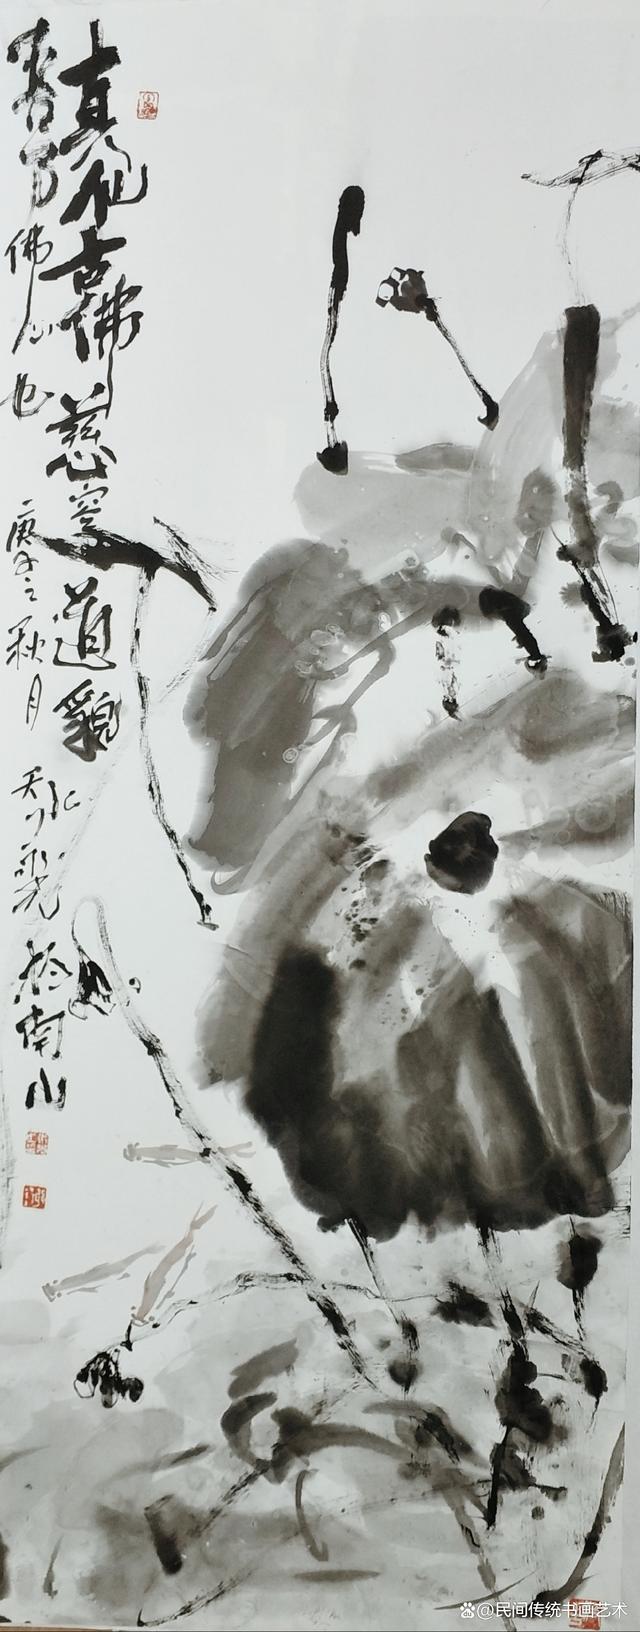 真仙古佛慈容道貌
佛心也
庚子之秋月
於南山
@民间传统书画艺术